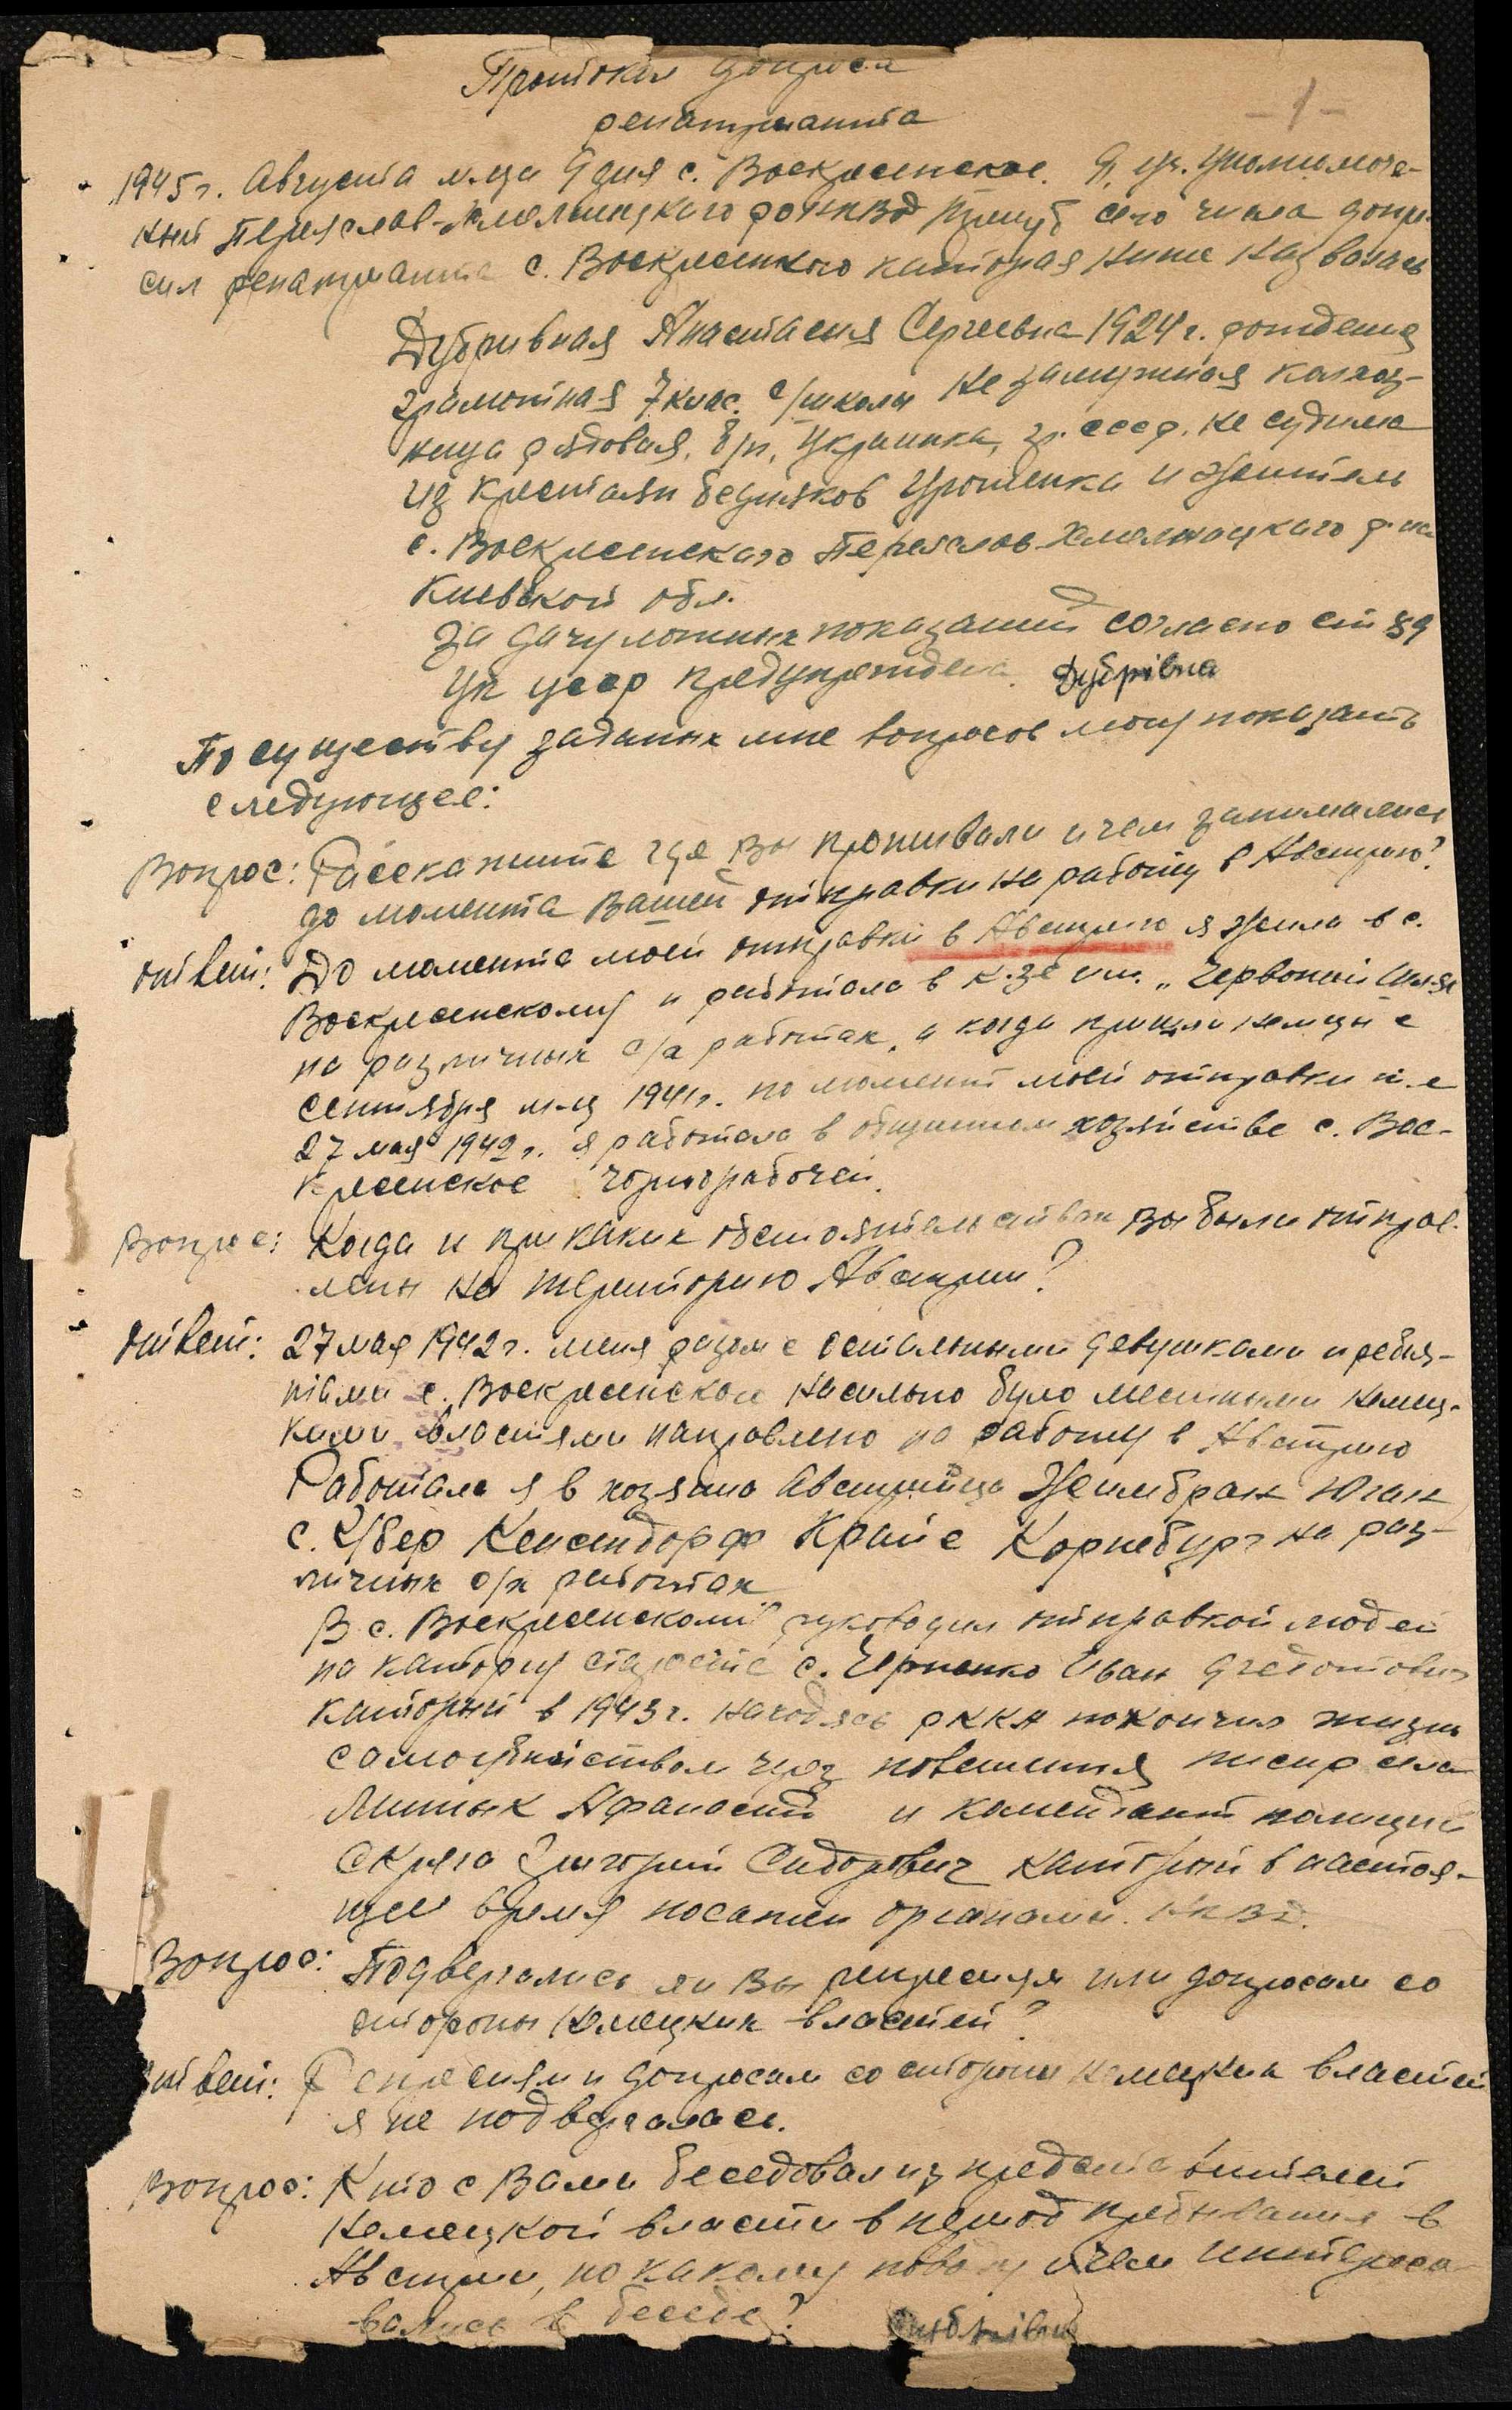 Протокол допроса
репатрианта
-1-
1945 г. Августа м-ца 9 дня с. Воскресенское. Я, уполномоче-
ный Переяслав-Хмельницкого РОНКВД сего числа допро-
сил репатрианта с. Воскресенкого каторая ниже назвалась
Дубривная Анастасия Сергеевна 1924 г. рождения
грамотная 7 клас. с/школы не замужняя колхоз-
ница рядовая, б/п, Украинка, гр. СССР, не судима
из крестьян бедняков Уроженка и житель
с. Воскресенского Переяслав-Хмельницкого р-на
Киевской обл.
За дачу ложных показаний согласно ст 89
УК УССР предупреждена. Дубрівна
По существу заданых мне вопросов могу показать
следующее:
Вопрос: Расскажите где Вы проживали и чем занимались
до момента Вашей отправки на работу в Австрию?
Ответ: До момента моей отправки в Австрию я жила в с.
Воскресенскому и работала в к-зе им. „Червоний Шлях
на различных с/х работах, а когда пришли немцы с
сентября м-ца 1941 г. по момент моей отправки т.е
27 мая 1942 г. я работала в общинном хозяйстве с. Вос-
кресенское чорнорабочей.
Вопрос: Когда и при каких обстоятельствах Вы были отправ-
лены на територию Австрии?
Ответ: 27 мая 1942 г. меня разом с остальными девушками и ребя-
тами с. Воскресенское насильно було местными немец-
кими властями направлено на работу в Австрию
Работала я в хозяина Австрийца Жеимбран Юган
с. Убер Кенсендорф Крайс Корнебург на раз-
личных с/х работах
В с. Воскресенском руководил отправкой людей
на каторгу староста с. Черненко Иван
каторый в 1943 г. находясь РККА покончил жизнь
самоубийством чрез повешения, писар села
Минык Афанасий и комендант полиции
Скряга Григорий Сидорович каторый в настоя-
щее время посажен органами НКВД.
Вопрос: Подвергались ли Вы репресиям или допросам со
стороны немецких властей?
Ответ: Репресиям и допросам со стороны немецких властей
я не подвергалась.
Вопрос: Кто с Вами беседовал из представителей
немецкой власти в период пребывания в
Австрии, по какому поводу и чем интересо-
вались в беседе? Дубрівна